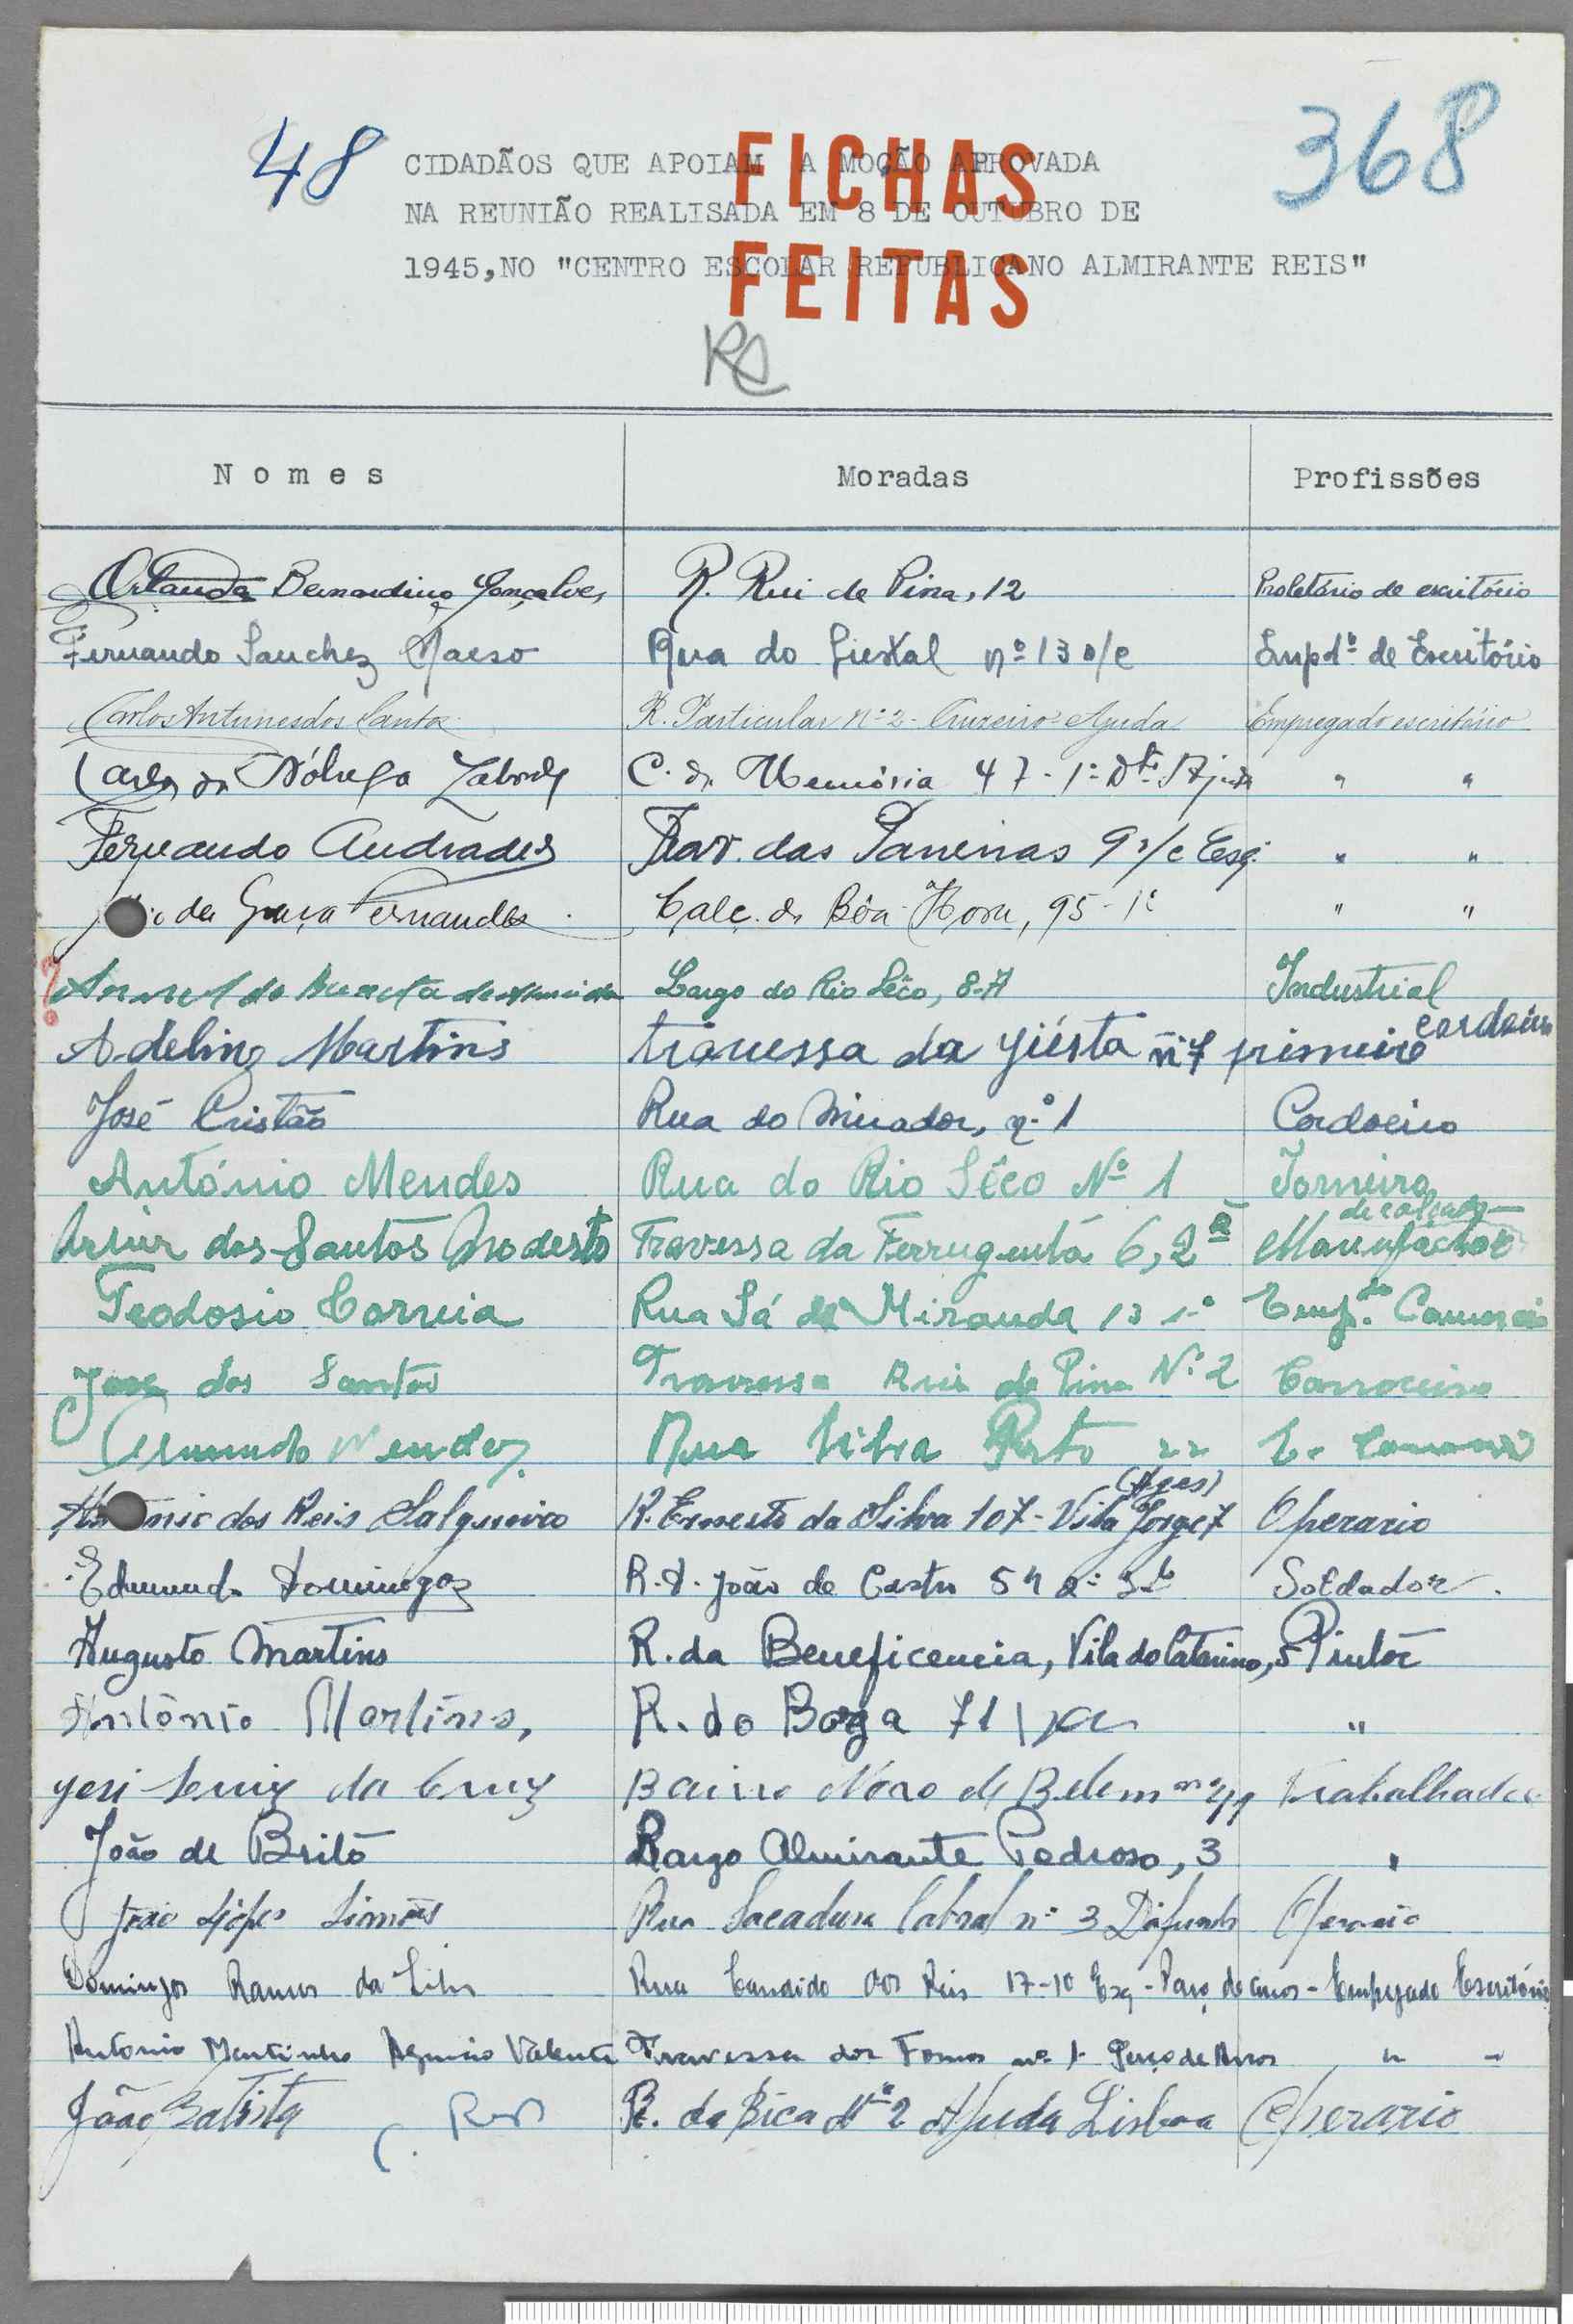 48 CIDADÃOS QUE APOIAM A MOÇÃO APROVADA 368
NA REUNIÃO REALISADA EM 8 DE OUTUBRO DE
1945, NO "CENTRO ESCOLAR REPUBLICANO ALMIRANTE REIS"
FICHAS
FEITAS
Nomes Moradas Profissões
Bernardino Gonçalves R. Rui de Pina, 12 Proletário de escritório
Fernando Sanchez Maeso Rua do Giestal nº 13 Empdº de Escritório
Carlos Antunes dos Santos R. Particular nº 2 - Cruzeiro - Ajuda Empregado escritório
Carlos da Nóbrega C. da Memória 47 - 1º Dto. Ajuda " "
Fernando Andrade Trav. das 9 r/c Esq. " "
da Graça Fernandes Calç. da Bôa-Hora, 95-1º " "
? de Almeida Largo do Rio Sêco, 8-A Industrial
Adelino Martins travessa da giésta nº 7 primeiro cordoeiro
José Cristão Rua do Mirador, nº 1 Cordoeiro
António Mendes Rua do Rio Sêco Nº 1 Torneiro
de calçado
Artur dos Santos Modesto Travessa da Ferrugenta 6, 2º Manufactor
Teodosio Correia Rua Sá de Miranda 13 1º Empdo. Comercio
Jose dos Santos Travessa Ruis de Pina Nº 2 Carroceiro
Armando Mendes Rua Silva Porto 22 E. Comercio
(Ages)
António dos Reis Salgueiro R. Ernesto da Silva 107 - Vila Jorge 7 Operario
Edmundo Domingos R. D. João de Castro Soldador.
Augusto Martins R. da Beneficencia, Vila do Catarino, 5 Pintor
António Martins, R. do Borja 71 "
da Cruz Bairro Novo de Belem Trabalhador
João de Brito Largo Almirante Pedroso, 3 "
João Lopes Simões Rua Sacadura Cabral nº 3 Dafundo Operaio
Domingos Ramos da Silva Rua Candido dos Reis 17-1º Esq - Paço de Arcos - Empregado Escritório
Antonio Martinho Valente Travessa dos Fornos nº 1 Paço de Arcos " "
João Batista R. da Bica Nº 2 Ajuda Lisboa Operario